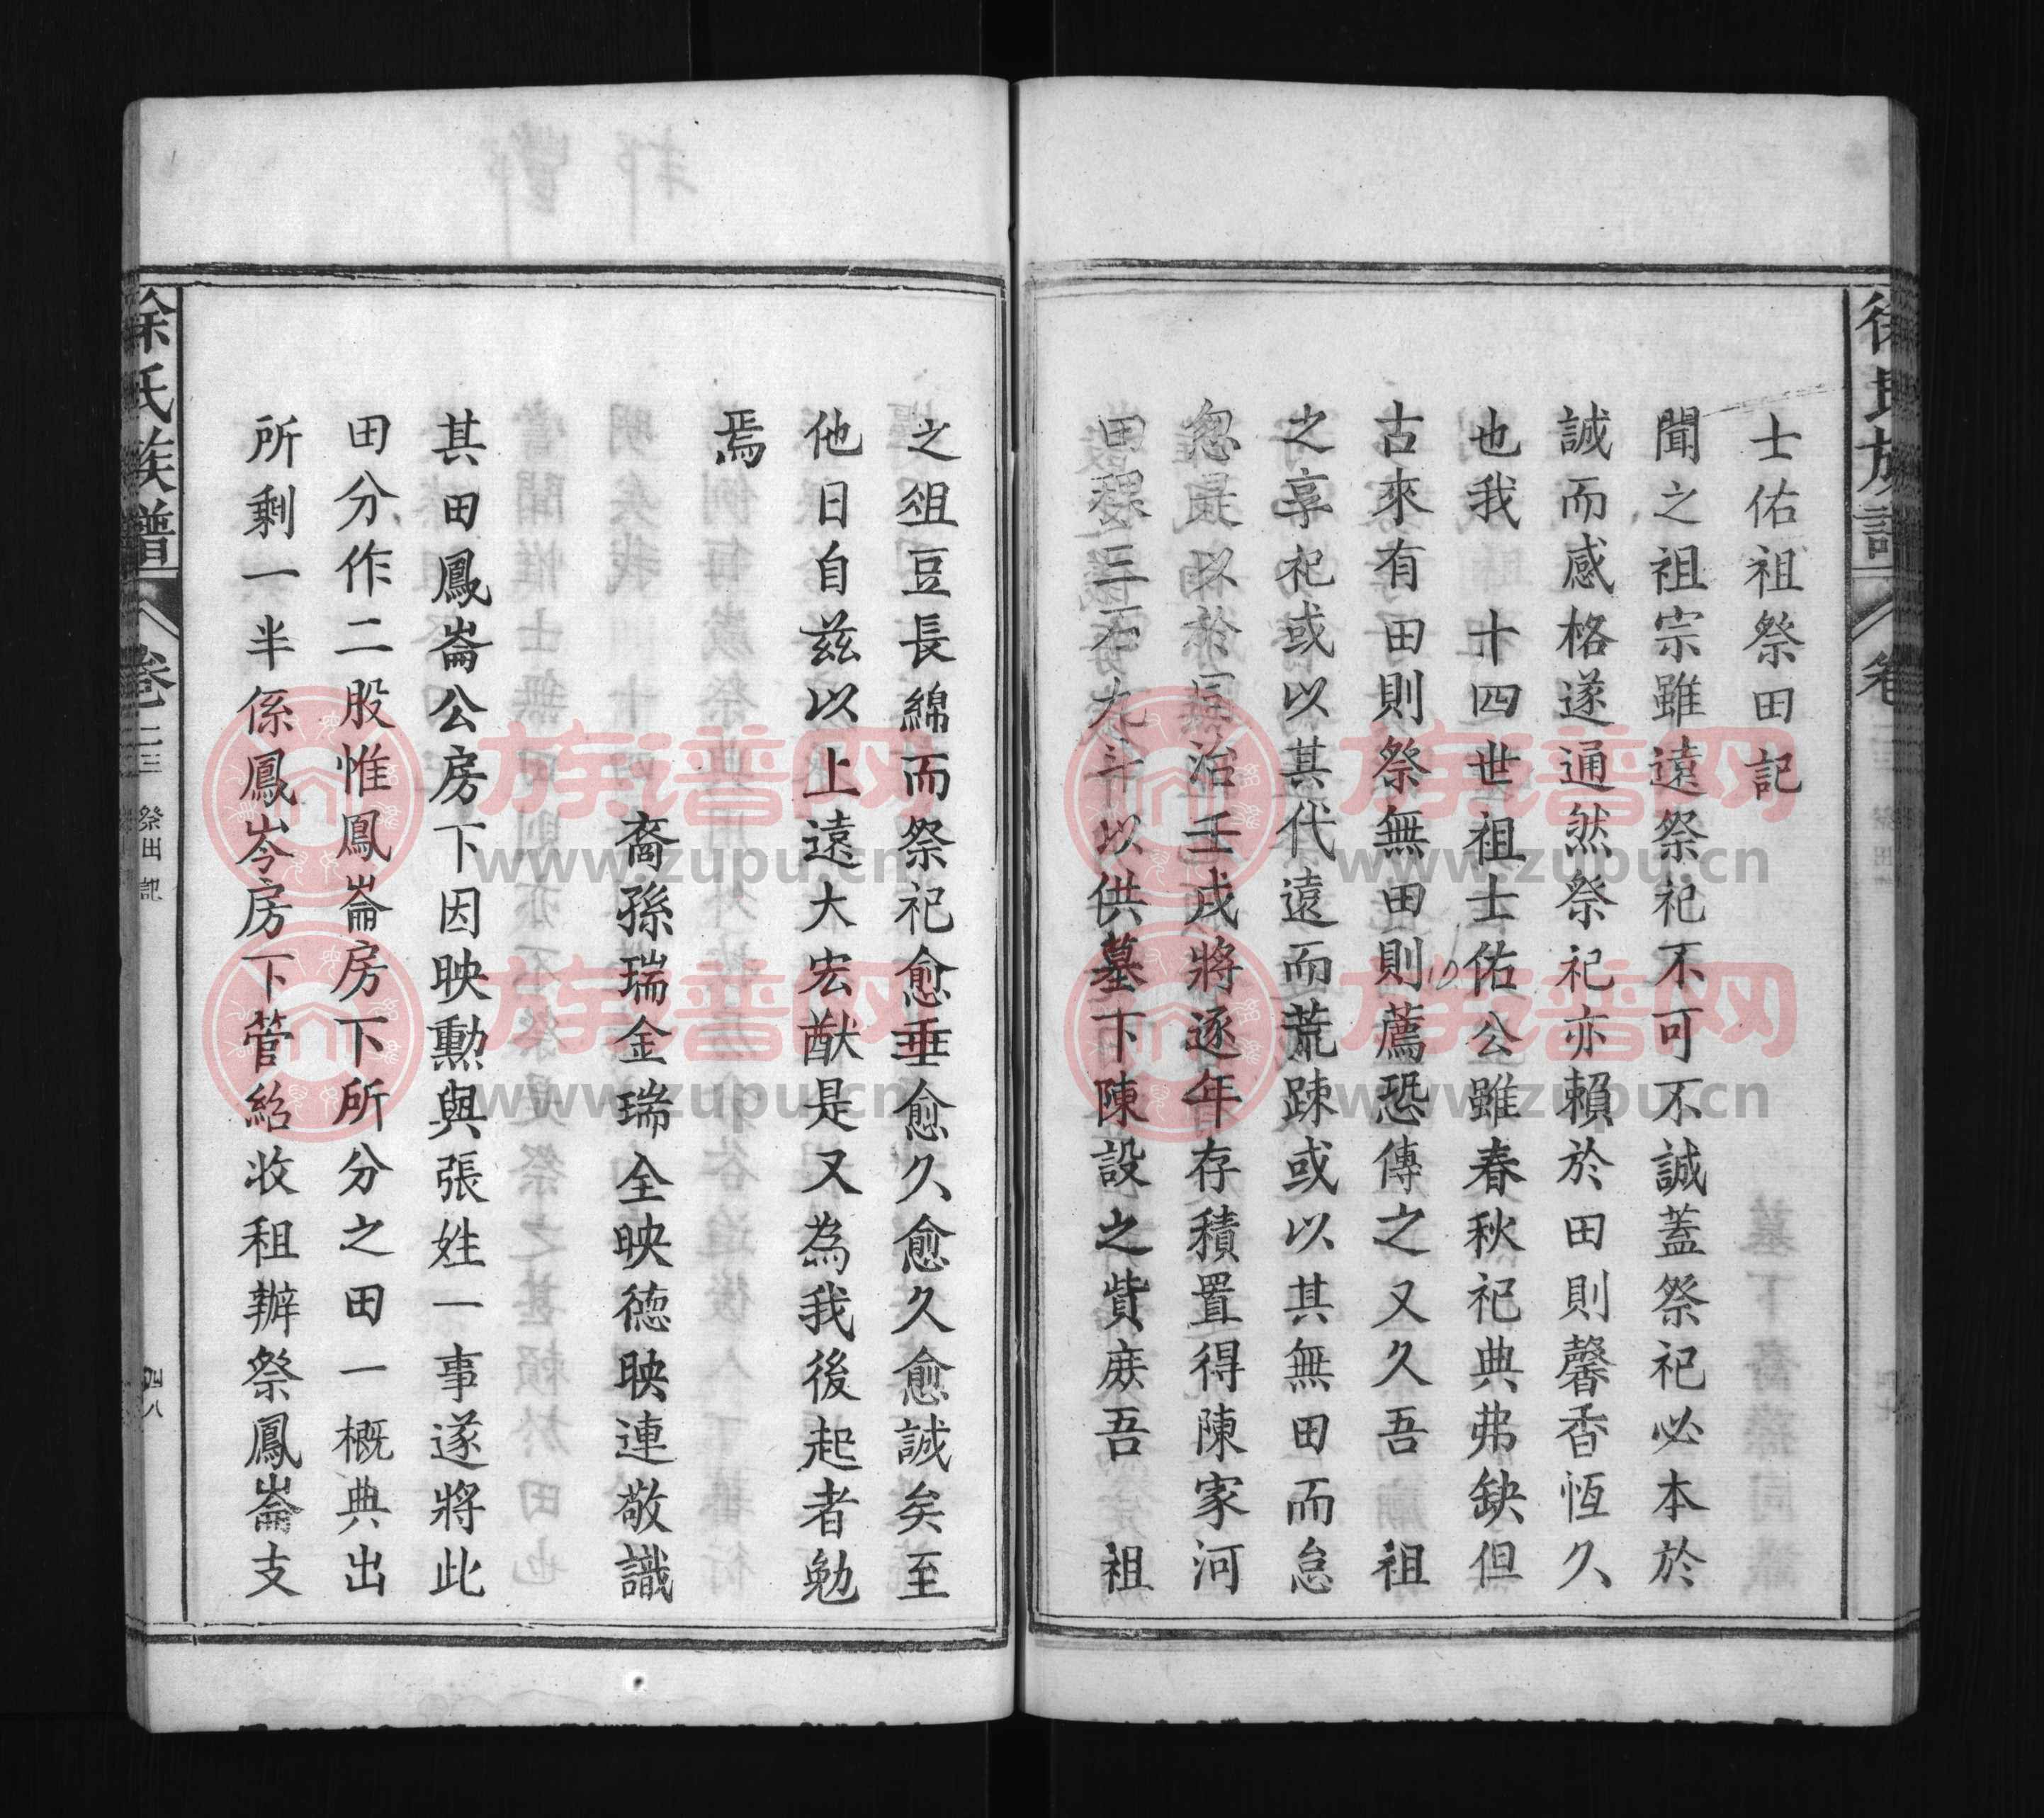 士佑祖祭田記
聞之祖宗雖遠祭祀不可不誠蓋祭祀必本於
誠而感格遂通然祭祀亦賴於田則馨香恆久
也我 十四世祖士佑公雖春秋祀典弗缺但
古來有田則祭無田則薦恐傳之又久吾 祖
之享祀或以其代遠而荒踈或以其無田而怠
忽最以於 治壬戌將逐年存積置得陳家河
田 三石九斗以供墓下陳設之貲庻吾 祖
之俎豆長綿而祭祀愈垂愈久愈久愈誠矣至
他日自兹以上遠大宏猷是又為我後起者勉
焉
裔孫瑞金瑞全映德映連敬識
其田鳳崙公房下因映勳與張姓一事遂將此
田分作二股惟鳳崙房下所分之田一概典出
所剩一半係鳳岑房下管給收租辦祭鳳崙支
徐氏族譜
卷二三
祭田記
四八
族谱网
www.zupu.cn
族谱网
www.zupu.cn
族谱网
www.zupu.cn
族谱网
www.zupu.cn